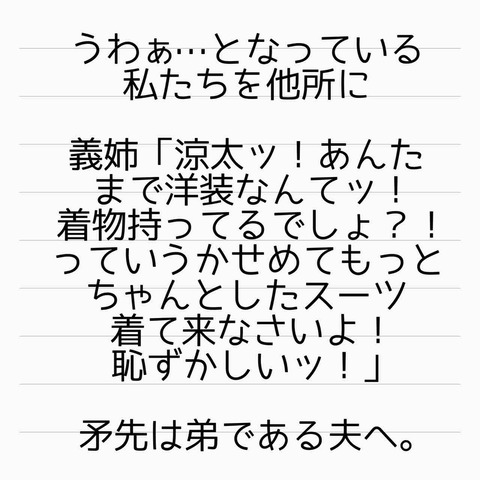 うわぁ…となっている
私たちを他所に
義姉「涼太ッ！あんた
まで洋装なんてッ！
着物持ってるでしょ？！
っていうかせめてもっと
ちゃんとしたスーツ
着て来なさいよ！
恥ずかしいッ！」
矛先は弟である夫へ。